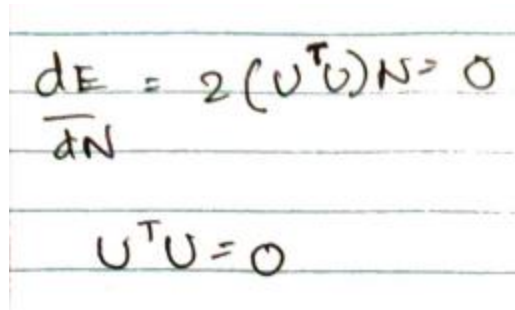 dE/dN = 2(UᵀU)N = 0
UᵀU = 0